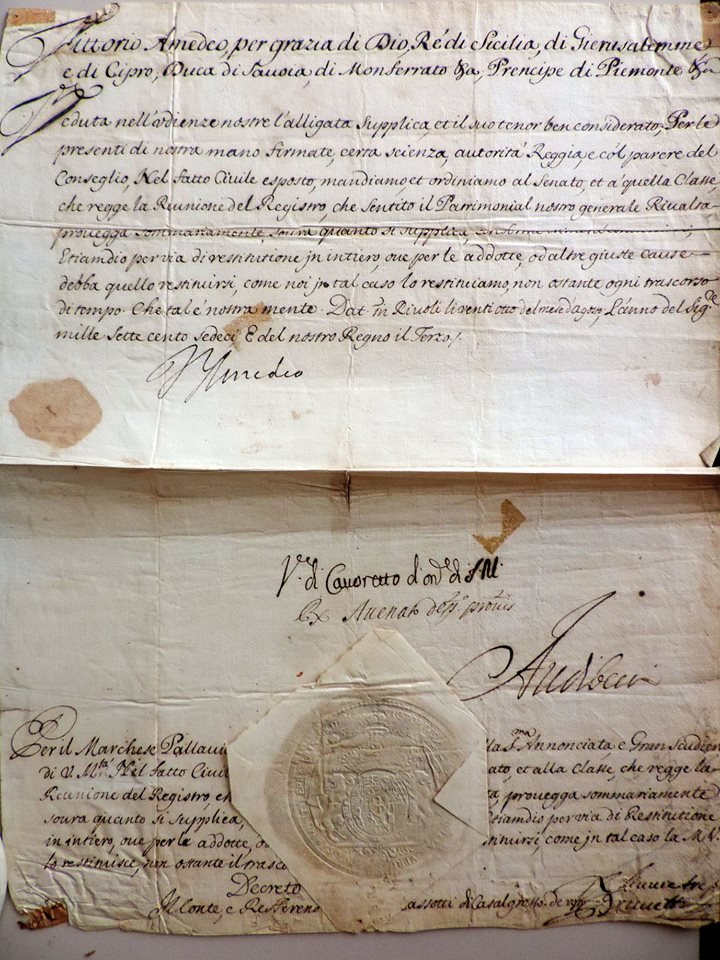 Vittorio Amedeo, per grazia di Dio, Rè di Sicilia, di Gierusalemme
e di Cipro, Duca di Savoia, di Monferrato &a, Prencipe di Piemonte &a
Veduta nell'udienze nostre l'alligata Supplica, et il suo tenor ben considerato, Per le
presenti di nostra mano firmate, certa scienza, autorità Reggia, e col parere del
Conseglio, Nel fatto Civile esposto, mandiamo, et ordiniamo al Senato, et a' quella Classe
che regge la Reunione del Registro, che sentito il Patrimonial nostro generale Rivalta
provegga sommariamente, soura quanto si supplica,
Etiamdio per via di restitutione jn intiero, oue per le addotte, od altre giuste cause
debba quello restituirsi, come noi jn tal caso lo restituiamo, non ostante ogni trascorso
di tempo. Che tal è nostra mente. Dat. jn Rivoli li vent'otto del mese d'agosto, L'anno del Sig.re
mille sette cento sedeci, E del nostro Regno il Terzo /.
V Amedeo
V.a di Cavoretto d'ord.e di S.M.
Per il Marchese Pallavi lla S.ma Annonciata e Gran Scudier
di V. M.tà Nel fatto Civil ato, et alla Classe, che regge la
Reunione del Registro, ch a, provegga sommariamente
soura quanto si supplica, Etiamdio per via di Restitutione
in intiero, oue per le addotte, o tituirsi, come jn tal caso la M.V.
lo restituisce, non ostante il trasco
Decreto
Il Conte, e Refferend assotti di Casalgrasso